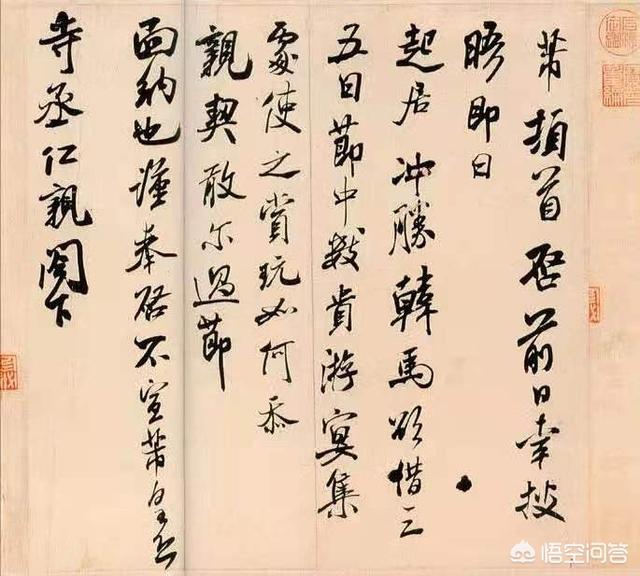 芾頓首啓前日幸披
晤即日
起居冲勝韓馬欲借三
五日節中數貴游宴集
處使之賞玩如何忝
親契敢尓過節
面納也謹奉啓不宣芾
寺丞仁親閣下
悟空问答